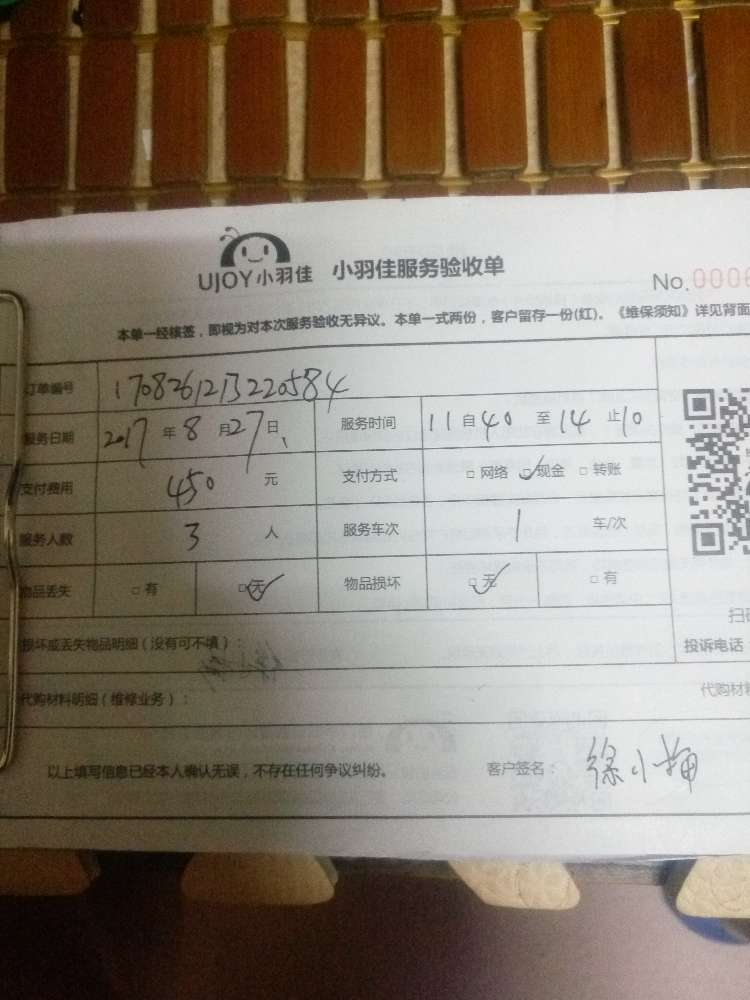 UJOY小羽佳 小羽佳服务验收单
No.0006
本单一经核签，即视为对本次服务验收无异议。本单一式两份，客户留存一份(红)。《维保须知》详见背面
订单编号 1708261213220584
服务日期 2017年8月27日 服务时间 11自40至14止10
支付费用 450元 支付方式 □网络 ☑现金 □转账
服务人数 3人 服务车次 1车/次
物品丢失 □有 ☑无 物品损坏 ☑无 □有
扫码
损坏或丢失物品明细（没有可不填）： 投诉电话：
代购材料明细（维修业务）： 代购材料
以上填写信息已经本人确认无误，不存在任何争议纠纷。 客户签名： 徐小梅